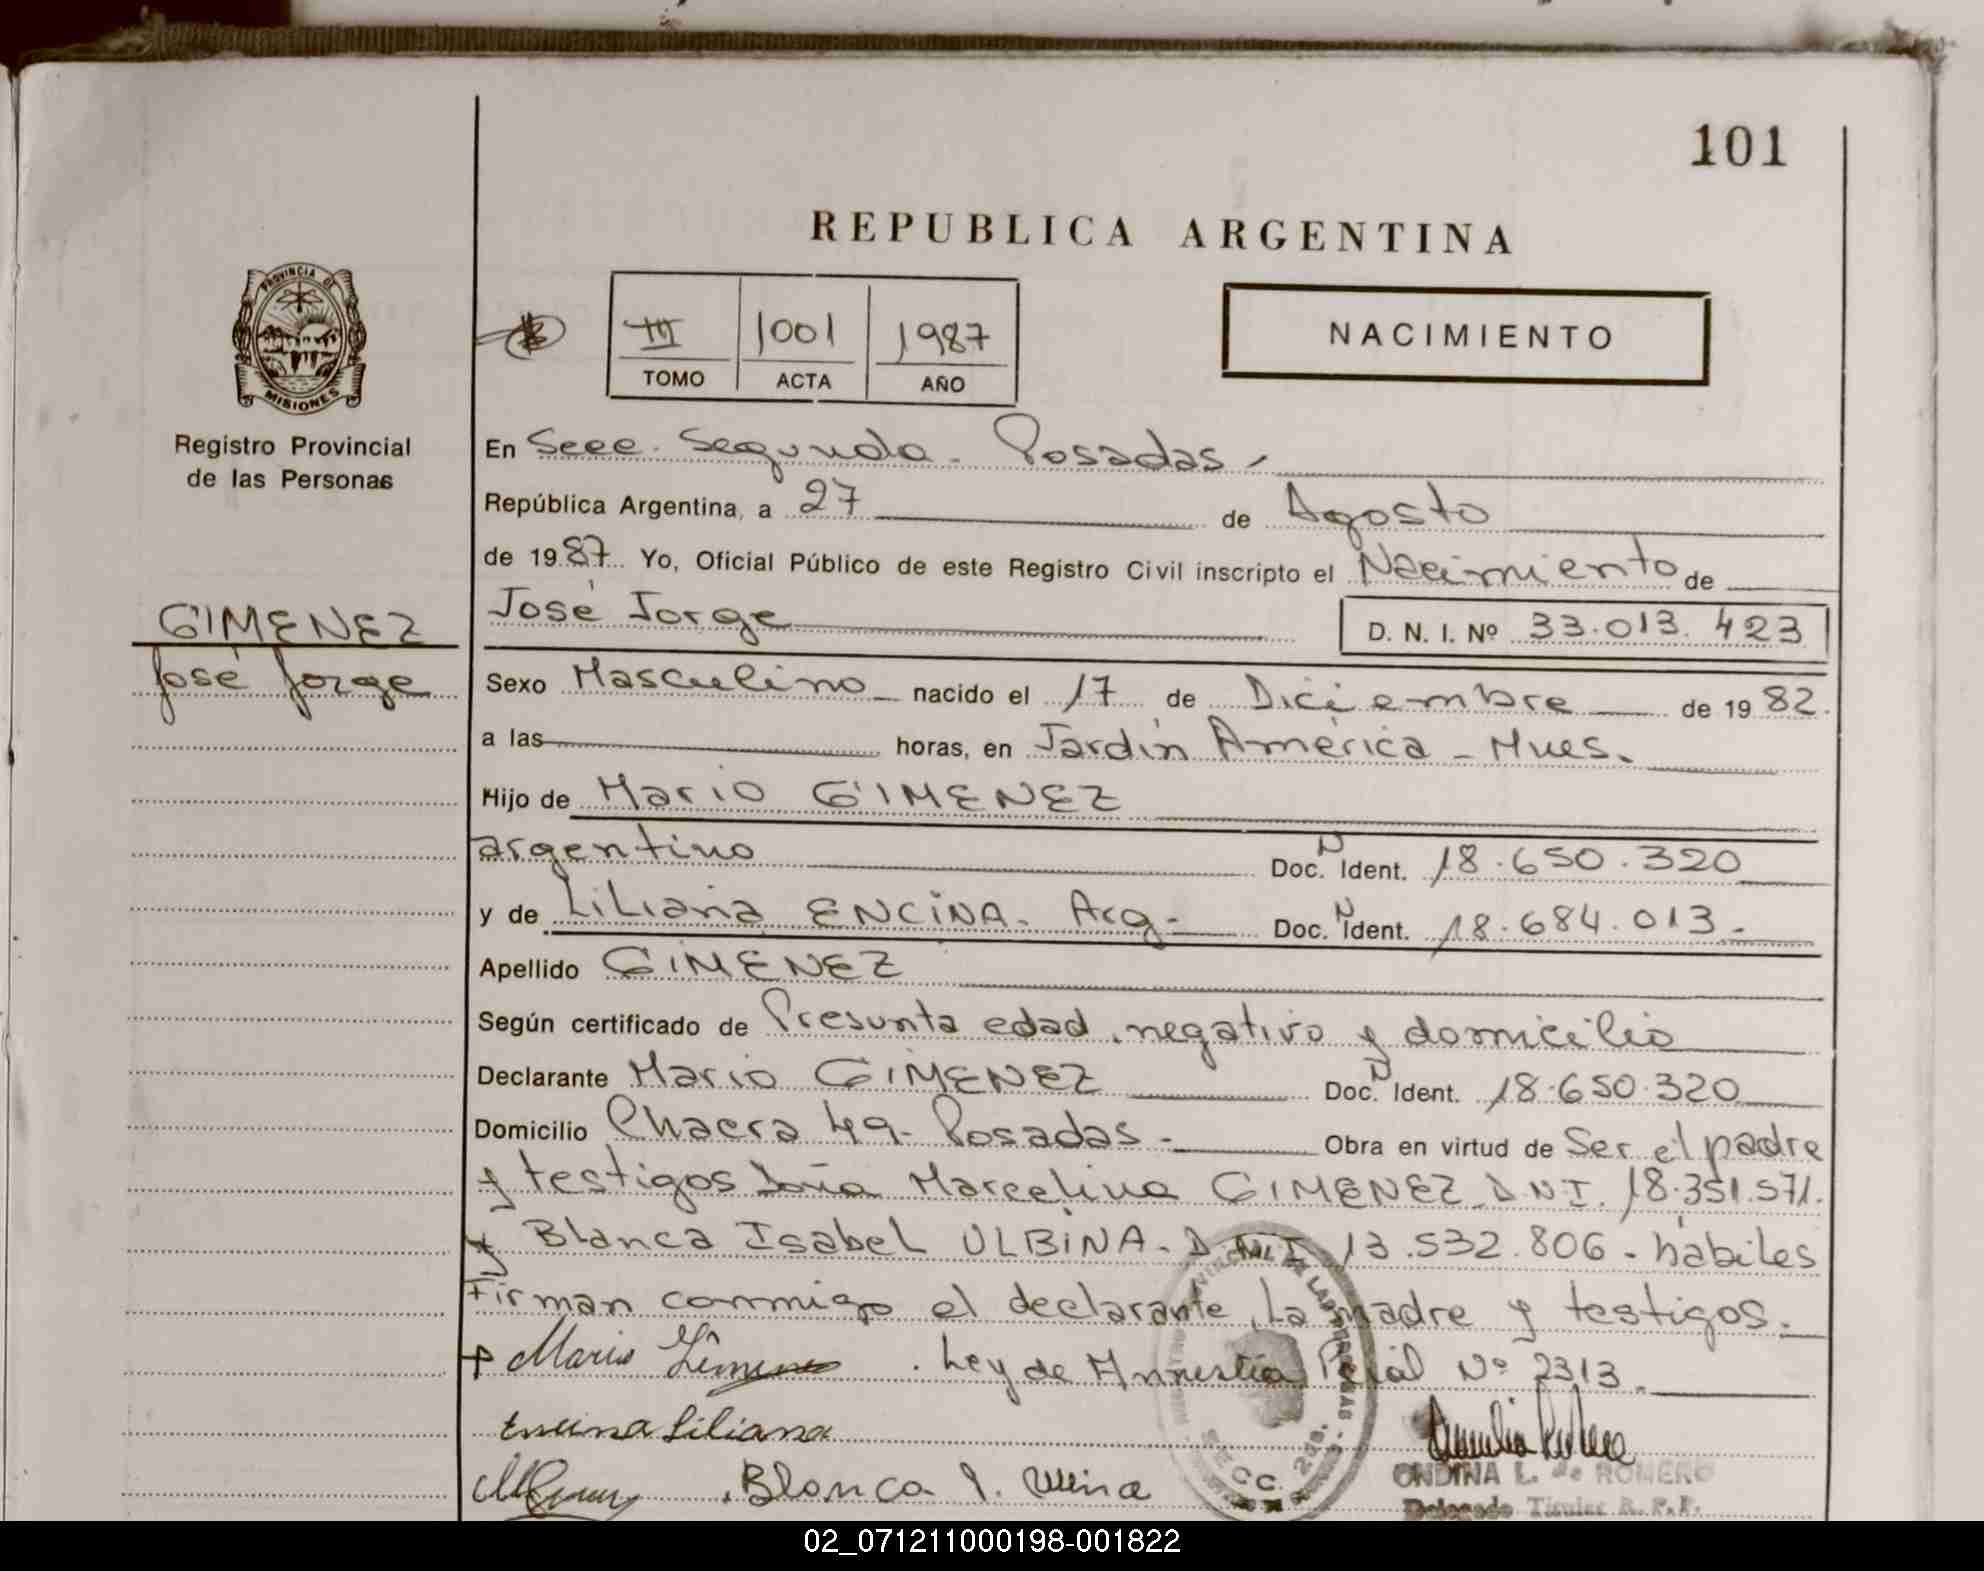 101
REPUBLICA ARGENTINA
PROVINCIA DE
MISIONES
Registro Provincial
de las Personas
III 1001 1987
TOMO ACTA AÑO
NACIMIENTO
En Secc. Segunda - Posadas -
República Argentina, a 27 de Agosto
de 1987 Yo, Oficial Público de este Registro Civil inscripto el Nacimiento de
GIMENEZ
José Jorge
José Jorge D. N. I. Nº 33.013.423
Sexo Masculino nacido el 17 de Diciembre de 1982.
a las horas, en Jardín América - Mnes.
Hijo de Mario GIMENEZ
argentino Doc. N Ident. 18.650.320
y de Liliana ENCINA. Arg - Doc. N Ident. 18.684.013.-
Apellido GIMENEZ
Según certificado de Presunta edad, negativo y domicilio
Declarante Mario GIMENEZ Doc. N Ident. 18.650.320
Domicilio Chacra 49- Posadas.- Obra en virtud de Ser el padre
y testigos Doña Marcelina GIMENEZ D.N.I. 18.351.571.
y Blanca Isabel ULBINA. D.N.I. 13.532.806 - hábiles
Firman conmigo el declarante, La madre y testigos.-
Mario Gimenez . Ley de Amnestía Pcial Nº 2313.
Encina Liliana
Blanca I. Ulbina
ONDINA L. de ROMERO
Delegado Titular R. P. P.
02_071211000198-001822